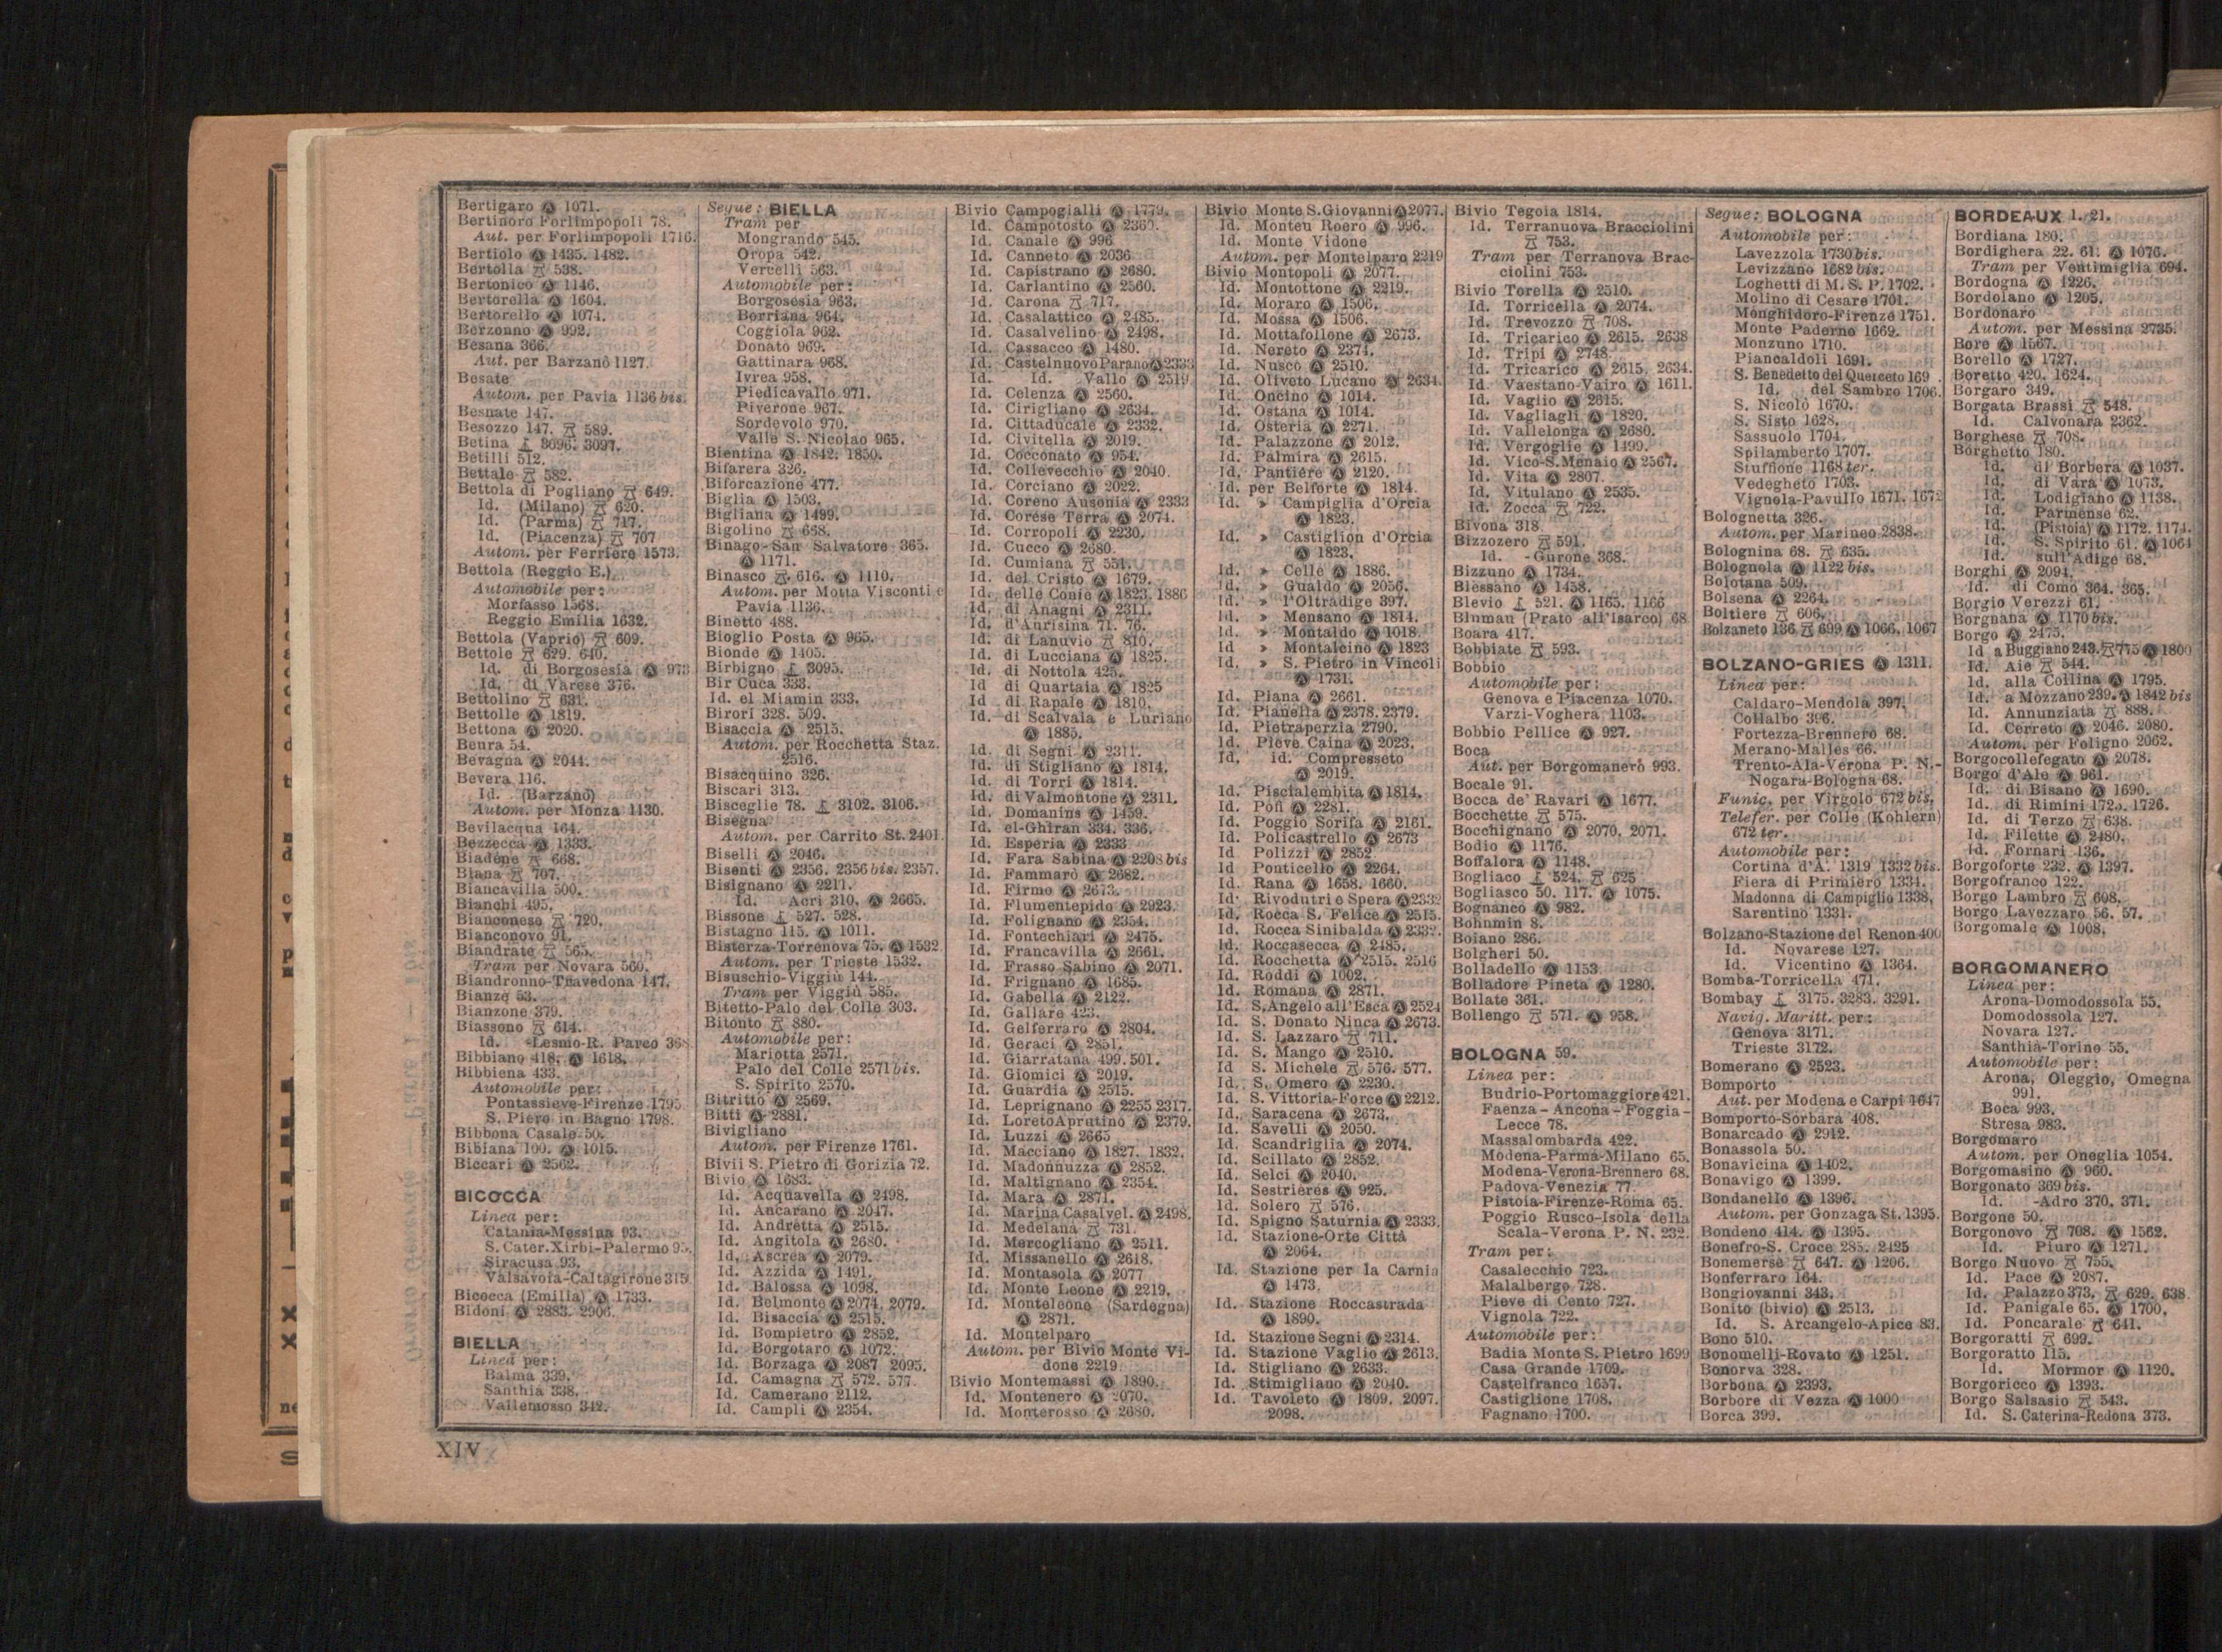 Bertigaro Ⓐ 1071.
Bertinoro Forlimpopoli 78.
Aut. per Forlimpopoli 1716.
Bertiolo Ⓐ 1435. 1482.
Bertolla 538.
Bertonico Ⓐ 1146.
Bertorella Ⓐ 1604.
Bertorello Ⓐ 1074.
Berzonno Ⓐ 992.
Besana 366.
Aut. per Barzanò 1127.
Besate
Autom. per Pavia 1136 bis.
Besnate 147.
Besozzo 147. 589.
Betina 3096. 3097.
Betilli 512.
Bettale 582.
Bettola di Pogliano 649.
Id. (Milano) 620.
Id. (Parma) 717.
Id. (Piacenza) 707
Autom. per Ferriere 1573.
Bettola (Reggio E.)
Automobile per:
Morfasso 1568.
Reggio Emilia 1632.
Bettola (Vaprio) 609.
Bettole 629. 640.
Id. di Borgosesia Ⓐ 973
Id. di Varese 376.
Bettolino 631.
Bettolle Ⓐ 1819.
Bettona Ⓐ 2020.
Beura 54.
Bevagna Ⓐ 2044.
Bevera 116.
Id. (Barzanò)
Autom. per Monza 1130.
Bevilacqua 164.
Bezzecca Ⓐ 1333.
Biadene 668.
Biana 707.
Biancavilla 500.
Bianchi 495.
Bianconese 720.
Bianconovo 91.
Biandrate 565.
Tram per Novara 560.
Biandronno-Travedona 147.
Bianze 53.
Bianzone 379.
Biassono 614.
Id. -Lesmo-R. Parco 368
Bibbiano 418. Ⓐ 1618.
Bibbiena 433.
Automobile per:
Pontassieve-Firenze 1795
S. Piero in Bagno 1798.
Bibbona Casale 50.
Bibiana 100. Ⓐ 1015.
Biccari Ⓐ 2562.
BICOCCA
Linea per:
Catania-Messina 93.
S. Cater. Xirbi-Palermo
Siracusa 93.
Valsavoia-Caltagirone 315.
Bicocca (Emilia) Ⓐ 1733.
Bidoni Ⓐ 2883. 2906.
BIELLA
Linea per:
Balma 339.
Santhia 338.
Vallemosso 342.
Segue: BIELLA
Tram per
Mongrando 545.
Oropa 542.
Vercelli 563.
Automobile per:
Borgosesia 963.
Borriana 964.
Coggiola 962.
Donato 969.
Gattinara 968.
Ivrea 958.
Piedicavallo 971.
Piverone 967.
Sordevolo 970.
Valle S. Nicolao 965.
Bientina Ⓐ 1842. 1850.
Bifarera 326.
Biforcazione 477.
Biglia Ⓐ 1503.
Bigliana Ⓐ 1499.
Bigolino 668.
Binago-San Salvatore 365.
Ⓐ 1171.
Binasco 616. Ⓐ 1110.
Autom. per Motta Visconti e
Pavia 1136.
Binetto 488.
Bioglio Posta Ⓐ 965.
Bionde Ⓐ 1405.
Birbigno 3095.
Bir Cuca 333.
Id. el Miamin 333.
Birori 328. 509.
Bisaccia Ⓐ 2515.
Autom. per Rocchetta Staz.
2516.
Bisacquino 326.
Biscari 313.
Bisceglie 78. 3102. 3106.
Bisegna
Autom. per Carrito St. 2401
Biselli Ⓐ 2046.
Bisenti Ⓐ 2356. 2356 bis. 2357.
Bisignano Ⓐ 2211.
Id. Acri 310. Ⓐ 2665.
Bissone 527. 528.
Bistagno 115. Ⓐ 1011.
Bisterza-Torrenova 75. Ⓐ 1532
Autom. per Trieste 1532.
Bisuschio-Viggiù 144.
Tram per Viggiù 585.
Bitetto-Palo del Colle 303.
Bitonto 880.
Automobile per:
Mariotta 2571.
Palo del Colle 2571 bis.
S. Spirito 2570.
Bitritto Ⓐ 2569.
Bitti Ⓐ 2881.
Bivigliano
Autom. per Firenze 1761.
Bivii S. Pietro di Gorizia 72.
Bivio Ⓐ 1683.
Id. Acquavella Ⓐ 2498.
Id. Ancarano Ⓐ 2047.
Id. Andretta Ⓐ 2515.
Id. Angitola Ⓐ 2680.
Id. Ascrea Ⓐ 2079.
Id. Azzida Ⓐ 1491.
Id. Balossa Ⓐ 1098.
Id. Belmonte Ⓐ 2074. 2079.
Id. Bisaccia Ⓐ 2515.
Id. Bompietro Ⓐ 2852.
Id. Borgotaro Ⓐ 1072.
Id. Borzaga Ⓐ 2087 2095.
Id. Camagna 572. 577.
Id. Camerano 2112.
Id. Campli Ⓐ 2354.
Bivio Campogialli Ⓐ 1779.
Id. Campotosto Ⓐ
Id. Canale Ⓐ 996
Id. Canneto Ⓐ 2036
Id. Capistrano Ⓐ 2680.
Id. Carlantino Ⓐ 2560.
Id. Carona 717.
Id. Casalattico Ⓐ 2485.
Id. Casalvelino Ⓐ 2498.
Id. Cassacco Ⓐ 1480.
Id. Castelnuovo Parano Ⓐ 2333
Id. Id. Vallo Ⓐ 2519
Id. Celenza Ⓐ 2560.
Id. Cirigliano Ⓐ 2634.
Id. Cittaducale Ⓐ 2332.
Id. Civitella Ⓐ 2019.
Id. Cocconato Ⓐ 954.
Id. Collevecchio Ⓐ 2040.
Id. Corciano Ⓐ 2022.
Id. Coreno Ausonia Ⓐ 2333
Id. Corese Terra Ⓐ 2074.
Id. Corropoli Ⓐ 2230.
Id. Cucco Ⓐ 2680.
Id. Cumiana 551.
Id. del Cristo Ⓐ 1679.
Id. delle Conie Ⓐ 1823. 1886
Id. di Anagni Ⓐ 2311.
Id. d'Aurisina 71. 76.
Id. di Lanuvio 810.
Id. di Lucciana Ⓐ 1825.
Id. di Nottola 425.
Id di Quartaia Ⓐ 1825
Id di Rapale Ⓐ 1810.
Id. di Scalvaia e Luriano
Ⓐ 1885.
Id. di Segni Ⓐ 2311.
Id. di Stigliano Ⓐ 1814.
Id. di Torri Ⓐ 1814.
Id. di Valmontone Ⓐ 2311.
Id. Domanins Ⓐ 1459.
Id. el-Ghiran 334. 336.
Id. Esperia Ⓐ 2333
Id. Fara Sabina Ⓐ 2208 bis
Id. Fammarò Ⓐ 2682.
Id. Firmo Ⓐ 2673.
Id. Flumentepido Ⓐ 2923.
Id. Folignano Ⓐ 2354.
Id. Fontechiari Ⓐ 2475.
Id. Francavilla Ⓐ 2661.
Id. Frasso Sabino Ⓐ 2071.
Id. Frignano Ⓐ 1685.
Id. Gabella Ⓐ 2122.
Id. Gallare 423.
Id. Gelferraro Ⓐ 2804.
Id. Geraci Ⓐ 2851.
Id. Giarratana 499. 501.
Id. Giomici Ⓐ 2019.
Id. Guardia Ⓐ 2515.
Id. Leprignano Ⓐ 2255 2317.
Id. Loreto Aprutino Ⓐ 2379.
Id. Luzzi Ⓐ 2665
Id. Macciano Ⓐ 1827. 1832.
Id. Madonnuzza Ⓐ 2852.
Id. Maltignano Ⓐ 2354.
Id. Mara Ⓐ 2871.
Id. Marina Casalvel. Ⓐ 2498.
Id. Medelana 731.
Id. Mercogliano Ⓐ 2511.
Id. Missanello Ⓐ 2618.
Id. Montasola Ⓐ 2077
Id. Monte Leone Ⓐ 2219.
Id. Monteleone (Sardegna)
Ⓐ 2871.
Id. Montelparo
Autom. per Bivio Monte Vi-
done 2219.
Bivio Montemassi Ⓐ 1890.
Id. Montenero Ⓐ
Id. Monterosso Ⓐ 2680.
Bivio Monte S. Giovanni Ⓐ 2077.
Id. Monteu Roero Ⓐ 996.
Id. Monte Vidone
Autom. per Montelparo 2219
Bivio Montopoli Ⓐ 2077.
Id. Montottone Ⓐ 2219.
Id. Moraro Ⓐ 1506.
Id. Mossa Ⓐ 1506.
Id. Mottafollone Ⓐ 2673.
Id. Nereto Ⓐ 2374.
Id. Nusco Ⓐ 2510.
Id. Oliveto Lucano Ⓐ 2634.
Id. Oncino Ⓐ 1014.
Id. Ostana Ⓐ 1014.
Id. Osteria Ⓐ 2271.
Id. Palazzone Ⓐ 2012.
Id. Palmira Ⓐ 2615.
Id. Pantiere Ⓐ 2120.
Id. per Belforte Ⓐ 1814.
Id. » Campiglia d'Orcia
Ⓐ 1823.
Id. » Castiglion d'Orcia
Ⓐ 1823.
Id. » Celle Ⓐ 1886.
Id. » Gualdo Ⓐ 2056.
Id. » l'Oltradige 397.
Id. » Mensano Ⓐ 1814.
Id. » Montaldo Ⓐ 1018
Id. » Montalcino Ⓐ 1823
Id. » S. Pietro in Vincoli
Ⓐ 1731.
Id. Piana Ⓐ 2661.
Id. Pianella Ⓐ 2378. 2379.
Id. Pietraperzia 2790.
Id. Pieve Caina Ⓐ 2023.
Id. id. Compresseto
Ⓐ 2019.
Id. Piscialembita Ⓐ 1814.
Id. Pofi Ⓐ 2281.
Id. Poggio Sorifa Ⓐ 2161.
Id. Policastrello Ⓐ 2673
Id Polizzi Ⓐ 2852
Id Ponticello Ⓐ 2264.
Id. Rana Ⓐ 1658. 1660.
Id. Rivodutri e Spera Ⓐ 2332
Id. Rocca S. Felice Ⓐ 2515.
Id. Rocca Sinibalda Ⓐ 2332.
Id. Roccasecca Ⓐ 2485.
Id. Rocchetta Ⓐ 2515. 2516
Id. Roddi Ⓐ 1002.
Id. Romana Ⓐ 2871.
Id. S. Angelo all'Esca Ⓐ 2524
Id. S. Donato Ninca Ⓐ 2673.
Id. S. Lazzaro 711.
Id. S. Mango Ⓐ 2510.
Id S. Michele 576. 577.
Id. S. Omero Ⓐ 2230.
Id. S. Vittoria-Force Ⓐ 2212.
Id. Saracena Ⓐ 2673.
Id. Savelli Ⓐ 2050.
Id. Scandriglia Ⓐ 2074.
Id. Scillato Ⓐ 2852.
Id. Selci Ⓐ 2040.
Id. Sestrieres Ⓐ 925.
Id. Solero 576.
Id. Spigno Saturnia Ⓐ 2333.
Id. Stazione-Orte Città
Ⓐ 2064.
Id. Stazione per la Carnia
Ⓐ 1473.
Id. Stazione Roccastrada
Ⓐ 1890.
Id. Stazione Segni Ⓐ 2314.
Id. Stazione Vaglio Ⓐ 2613.
Id. Stigliano Ⓐ 2633.
Id. Stimigliano Ⓐ 2040.
Id. Tavoleto Ⓐ 1809. 2097.
2098.
Bivio Tegoia 1814.
Id. Terranuova Bracciolini
753.
Tram per Terranova Brac-
ciolini 753.
Bivio Torella Ⓐ 2510.
Id. Torricella Ⓐ 2074.
Id. Trevozzo 708.
Id. Tricarico Ⓐ 2615. 2638
Id. Tripi Ⓐ 2748.
Id. Tricarico Ⓐ 2615. 2634.
Id. Vaestano-Vairo Ⓐ 1611.
Id. Vaglio Ⓐ 2615.
Id. Vagliagli Ⓐ 1820.
Id. Vallelonga Ⓐ 2680.
Id. Vergoglie Ⓐ 1499.
Id. Vico-S. Menaio Ⓐ 2567.
Id. Vita Ⓐ 2807.
Id. Vitulano Ⓐ 2535.
Id. Zocca 722.
Bivona 318
Bizzozero 591.
Id. -Gurone 368.
Bizzuno Ⓐ 1734.
Blessano Ⓐ 1458.
Blevio 521. Ⓐ 1165. 1166
Blumau (Prato all'Isarco) 68
Boara 417.
Bobbiate 593.
Bobbio
Automobile per:
Genova e Piacenza 1070.
Varzi-Voghera 1103.
Bobbio Pellice Ⓐ 927.
Boca
Aut. per Borgomanero 993.
Bocale 91.
Bocca de' Ravari Ⓐ 1677.
Bocchette 575.
Bocchignano Ⓐ 2070. 2071.
Bodio Ⓐ 1176.
Boffalora Ⓐ 1148.
Bogliaco 524. 625
Bogliasco 50. 117. Ⓐ 1075.
Bognanco Ⓐ 982.
Bohnmin 8.
Boiano 286.
Bolgheri 50.
Bolladello Ⓐ 1153.
Bolladore Pineta Ⓐ 1280.
Bollate 361.
Bollengo 571. Ⓐ 958.
BOLOGNA 59.
Linea per:
Budrio-Portomaggiore 421.
Faenza-Ancona-Foggia-
Lecce 78.
Massalombarda 422.
Modena-Parma-Milano 65.
Modena-Verona-Brennero 68.
Padova-Venezia 77.
Pistoia-Firenze-Roma 65.
Poggio Rusco-Isola della
Scala-Verona P. N. 232.
Tram per:
Casalecchio 723.
Malalbergo 728.
Pieve di Cento 727.
Vignola 722.
Automobile per:
Badia Monte S. Pietro 1699
Casa Grande 1709.
Castelfranco 1657.
Castiglione 1708.
Fagnano 1700.
Segue: BOLOGNA
Automobile per:
Lavezzola 1730 bis.
Levizzano 1682 bis.
Loghetti di M. S. P. 1702.
Molino di Cesare 1701.
Monghidoro-Firenze 1751.
Monte Paderno 1669.
Monzuno 1710.
Piancaldoli 1691.
S. Benedetto del Querceto 169
Id. del Sambro 1706.
S. Nicolò 1670.
S. Sisto 1628.
Sassuolo 1704.
Spilamberto 1707.
Stuffione 1168 ter.
Vedegheto 1703.
Vignola-Pavullo 1671. 1672
Bolognetta 326.
Autom. per Marineo 2838.
Bolognina 68. 635.
Bolognola Ⓐ 1122 bis.
Bolotana 509.
Bolsena Ⓐ 2264.
Boltiere 606.
Bolzaneto 136. 699 Ⓐ 1066. 1067
BOLZANO-GRIES Ⓐ 1311.
Linea per:
Caldaro-Mendola 397.
Collalbo 396.
Fortezza-Brennero 68.
Merano-Malles 66.
Trento-Ala-Verona P. N.-
Nogara-Bologna 68.
Funic. per Virgolo 672 bis.
Telefer. per Colle (Kohlern)
672 ter.
Automobile per:
Cortina d'A. 1319 1332 bis.
Fiera di Primiero 1334.
Madonna di Campiglio 1338.
Sarentino 1331.
Bolzano-Stazione del Renon 400
Id. Novarese 127.
Id. Vicentino Ⓐ 1364.
Bomba-Torricella 471.
Bombay 3175. 3283. 3291.
Navig. Maritt. per:
Genova 3171.
Trieste 3172.
Bomerano Ⓐ 2523.
Bomporto
Aut. per Modena e Carpi 1647
Bomporto-Sorbara 408.
Bonarcado Ⓐ 2912.
Bonassola 50.
Bonavicina Ⓐ 1402.
Bonavigo Ⓐ 1399.
Bondanello Ⓐ 1396.
Autom. per Gonzaga St. 1395.
Bondeno 414. Ⓐ 1395.
Bonefro-S. Croce 285. 2425
Bonemerse 647. Ⓐ 1206.
Bonferraro 164.
Bongiovanni 343.
Bonito (bivio) Ⓐ 2513.
Id. S. Arcangelo-Apice 83.
Bono 510.
Bonomelli-Rovato Ⓐ 1251.
Bonorva 328.
Borbona Ⓐ 2393.
Borbore di Vezza Ⓐ 1000
Borca 399.
BORDEAUX 1. 21.
Bordiana 180.
Bordighera 22. 61. Ⓐ 1076.
Tram per Ventimiglia 694.
Bordogna Ⓐ 1226.
Bordolano Ⓐ 1205.
Bordonaro
Autom. per Messina 2735.
Bore Ⓐ 1567.
Borello Ⓐ 1727.
Boretto 420. 1624.
Borgaro 349.
Borgata Brassi 548.
Id. Calvonara 2362.
Borghese 708.
Borghetto 180.
Id. di Borbera Ⓐ 1037.
Id. di Vara Ⓐ 1073.
Id. Lodigiano Ⓐ 1138.
Id. Parmense 62.
Id. (Pistoia) Ⓐ 1172. 1174.
Id. S. Spirito 61. Ⓐ 1064
Id. sull'Adige 68.
Borghi Ⓐ 2094.
Id. di Como 364. 365.
Borgio Verezzi 61.
Borgnana Ⓐ 1170 bis.
Borgo Ⓐ 2475.
Id a Buggiano 243. 775 Ⓐ 1800
Id. Aie 544.
Id. alla Collina Ⓐ 1795.
Id. a Mozzano 239. Ⓐ 1842 bis
Id. Annunziata 888.
Id. Cerreto Ⓐ 2046. 2080.
Autom. per Foligno 2062.
Borgocollefegato Ⓐ 2078.
Borgo d'Ale Ⓐ 961.
Id. di Bisano Ⓐ 1690.
Id. di Rimini 1725. 1726.
Id. di Terzo 638.
Id. Filette Ⓐ 2480.
Id. Fornari 136.
Borgoforte 232. Ⓐ 1397.
Borgofranco 122.
Borgo Lambro 608.
Borgo Lavezzaro 56. 57.
Borgomale Ⓐ 1008.
BORGOMANERO
Linea per:
Arona-Domodossola 55.
Domodossola 127.
Novara 127.
Santhià-Torino 55.
Automobile per:
Arona, Oleggio, Omegna
991.
Boca 993.
Stresa 983.
Borgomaro
Autom. per Oneglia 1054.
Borgomasino Ⓐ 960.
Borgonato 369 bis.
Id. -Adro 370. 371.
Borgone 50.
Borgonovo 708. Ⓐ 1562.
Id. Piuro Ⓐ 1271.
Borgo Nuovo 755.
Id. Pace Ⓐ 2087.
Id. Palazzo 373. 629. 638
Id. Panigale 65. Ⓐ 1700.
Id. Poncarale 641.
Borgoratti 699.
Borgoratto 115.
Id. Mormor Ⓐ 1120.
Borgoricco Ⓐ 1393.
Borgo Salsasio 543.
Id. S. Caterina-Redona 373.
XIV